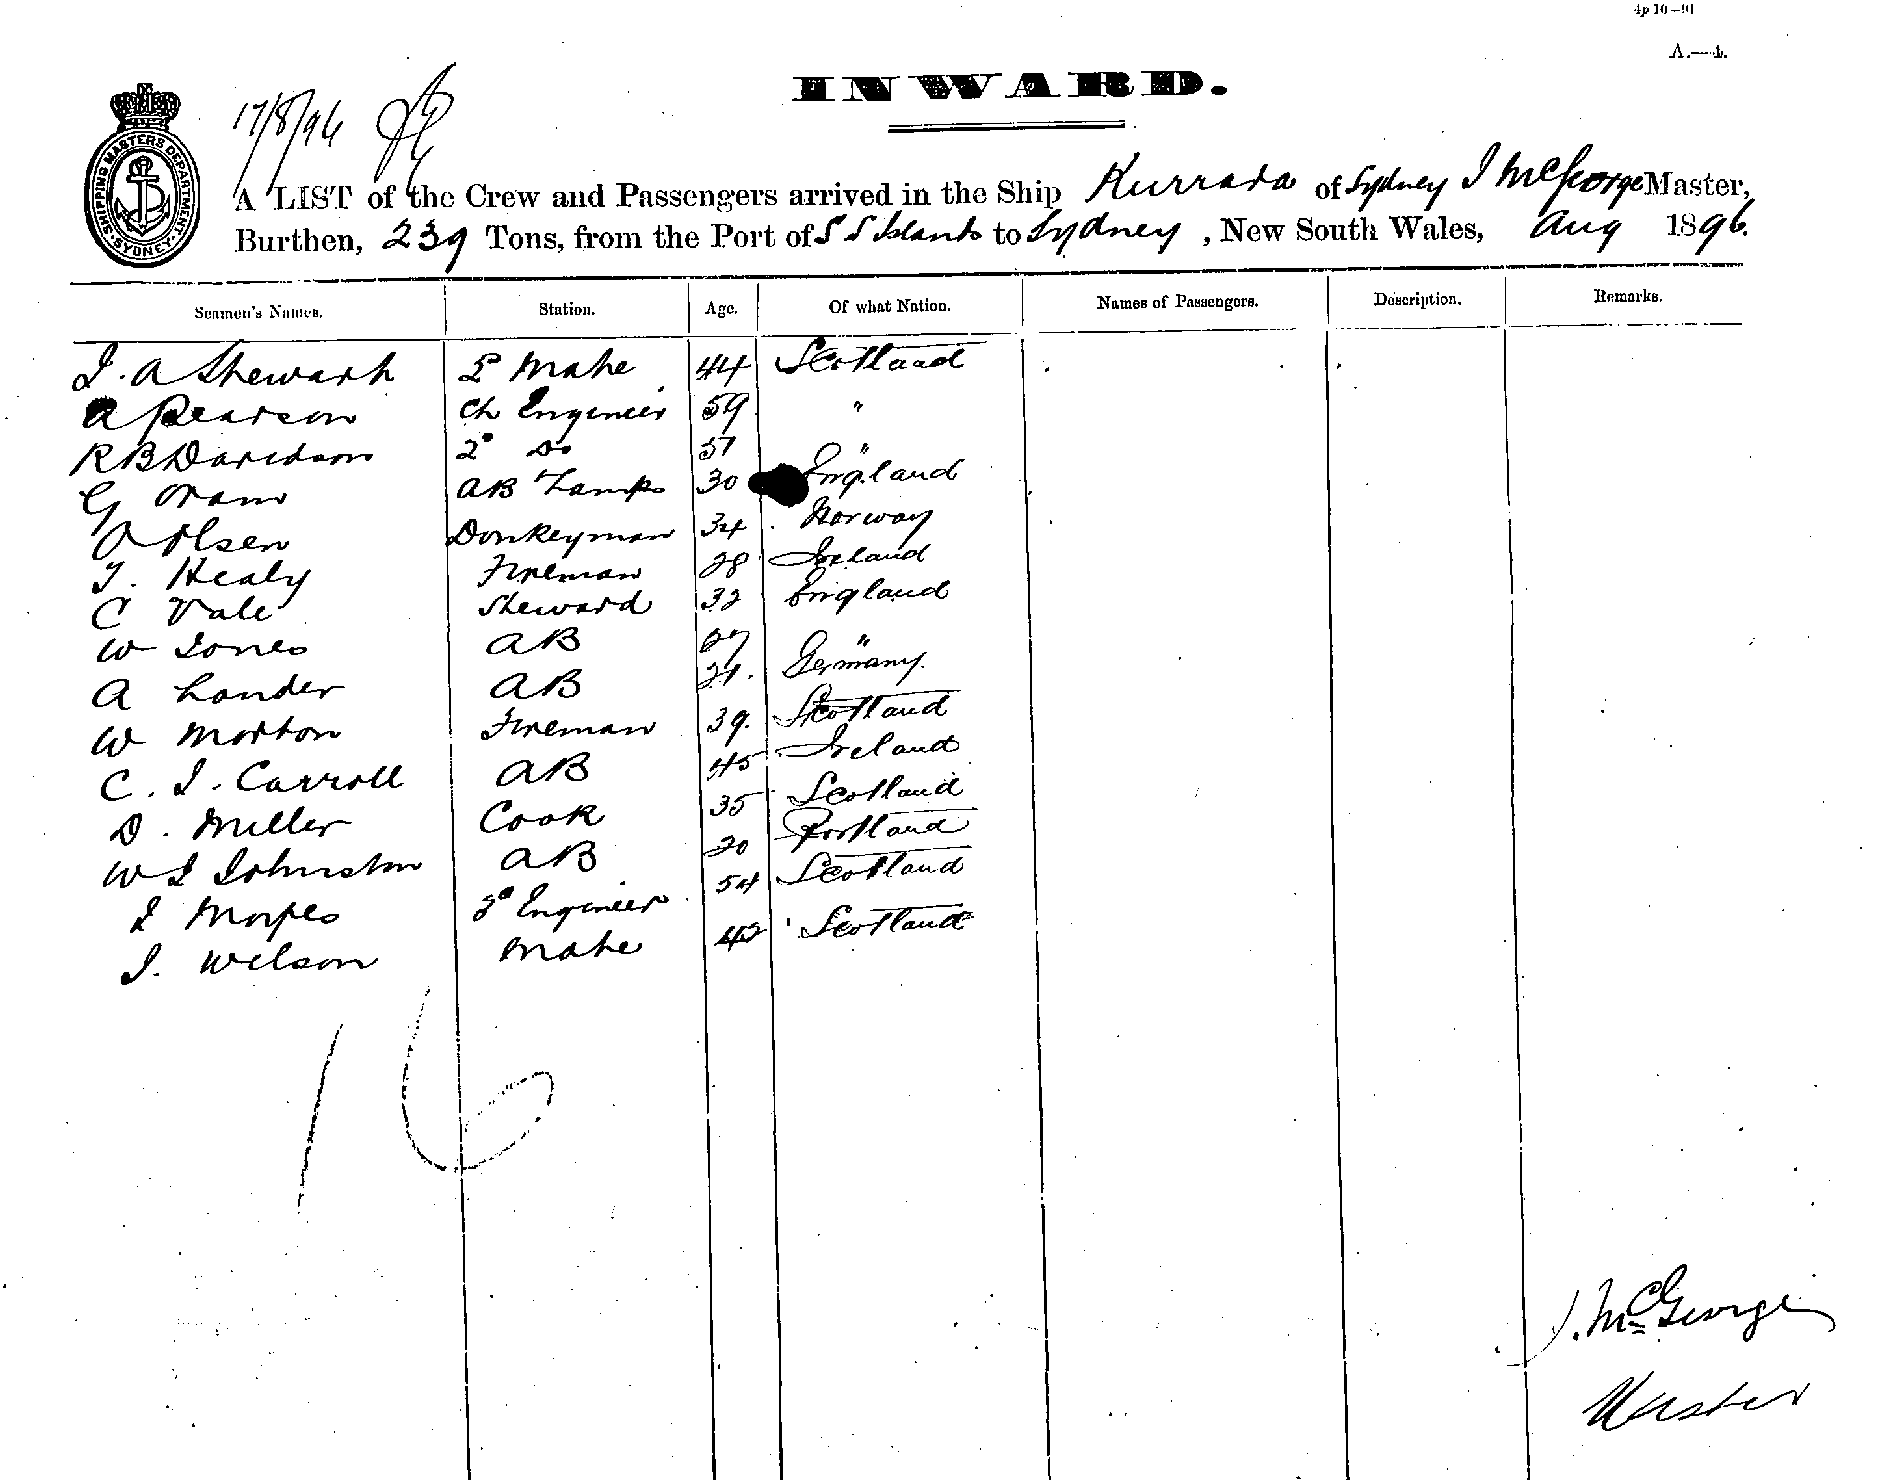 4p 10–91
A.—4.
INWARD.
SHIPPING MASTERS DEPARTMENT SYDNEY
17/8/96
A LIST of the Crew and Passengers arrived in the Ship Kurrara of Sydney J McGeorge Master,
Burthen, 239 Tons, from the Port of S S Islands to Sydney, New South Wales, Aug 1896.
Seamen's Names. Station. Age. Of what Nation. Names of Passengers. Description. Remarks.
J. A Stewart 2 Mate 44 Scotland
A Pearson Ch Engineer 59 "
R B Davidson 2° Do 51 "
G Oram AB Lamps 30 England
O Olsen Donkeyman 34 Norway
T. Healy Fireman 28 Ireland
C Vale Steward 32 England
W Jones AB 27 "
A Lander AB 21. Germany.
W Morton Fireman 39. Scotland
C. J. Carroll AB 45 Ireland
D. Miller Cook 35 Scotland
W J Johnston AB 20 Portland
J 3° Engineer 54 Scotland
J. Wilson Mate 42 Scotland
16
J. McGeorge
Master